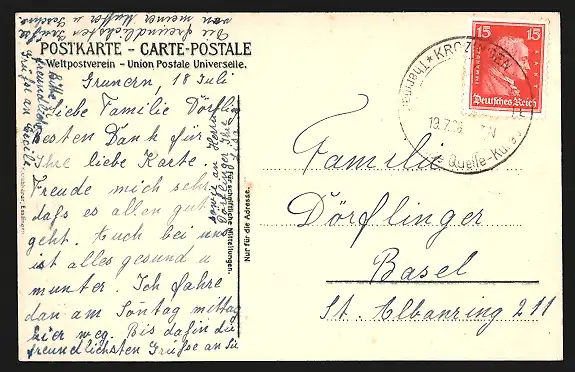 Die freundlichsten Grüße
von meiner Mutter u
POSTKARTE - CARTE-POSTALE
Weltpostverein - Union Postale Universelle.
Grunern, 18 Juli
liebe Familie Dörflin
besten Dank für
Ihre liebe Karte.
Freude mich sehr
daß es allen gut
geht. Auch bei uns
ist alles gesund u
munter. Ich fahre
dan am Sontag mittag
hier weg. Bis dafin die
freundlichsten Grüße an Sie
an Herrn
Bitte
freundliche
Grüße an Cécile
Für schriftliche Mitteilungen.
Nur für die Adresse.
15 15
IMMANUEL KANT
Deutsches Reich
* KROZINGEN
Thermal
Quelle-Kur
Familie
Dörflinger
Basel
St. Albanring 211